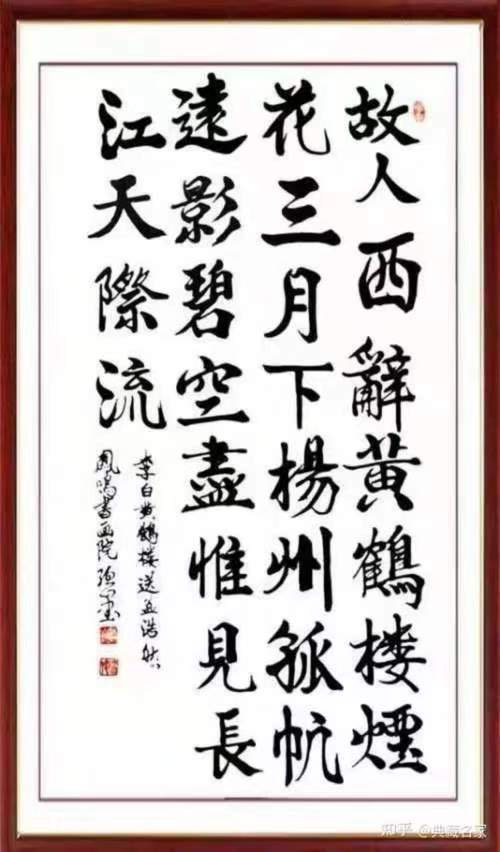 故人西辭黄鶴楼煙
花三月下楊州孤帆
遠影碧空盡惟見長
江天際流
李白黄鶴楼送孟浩然
鳳鸣書画院
知乎 @典藏名家